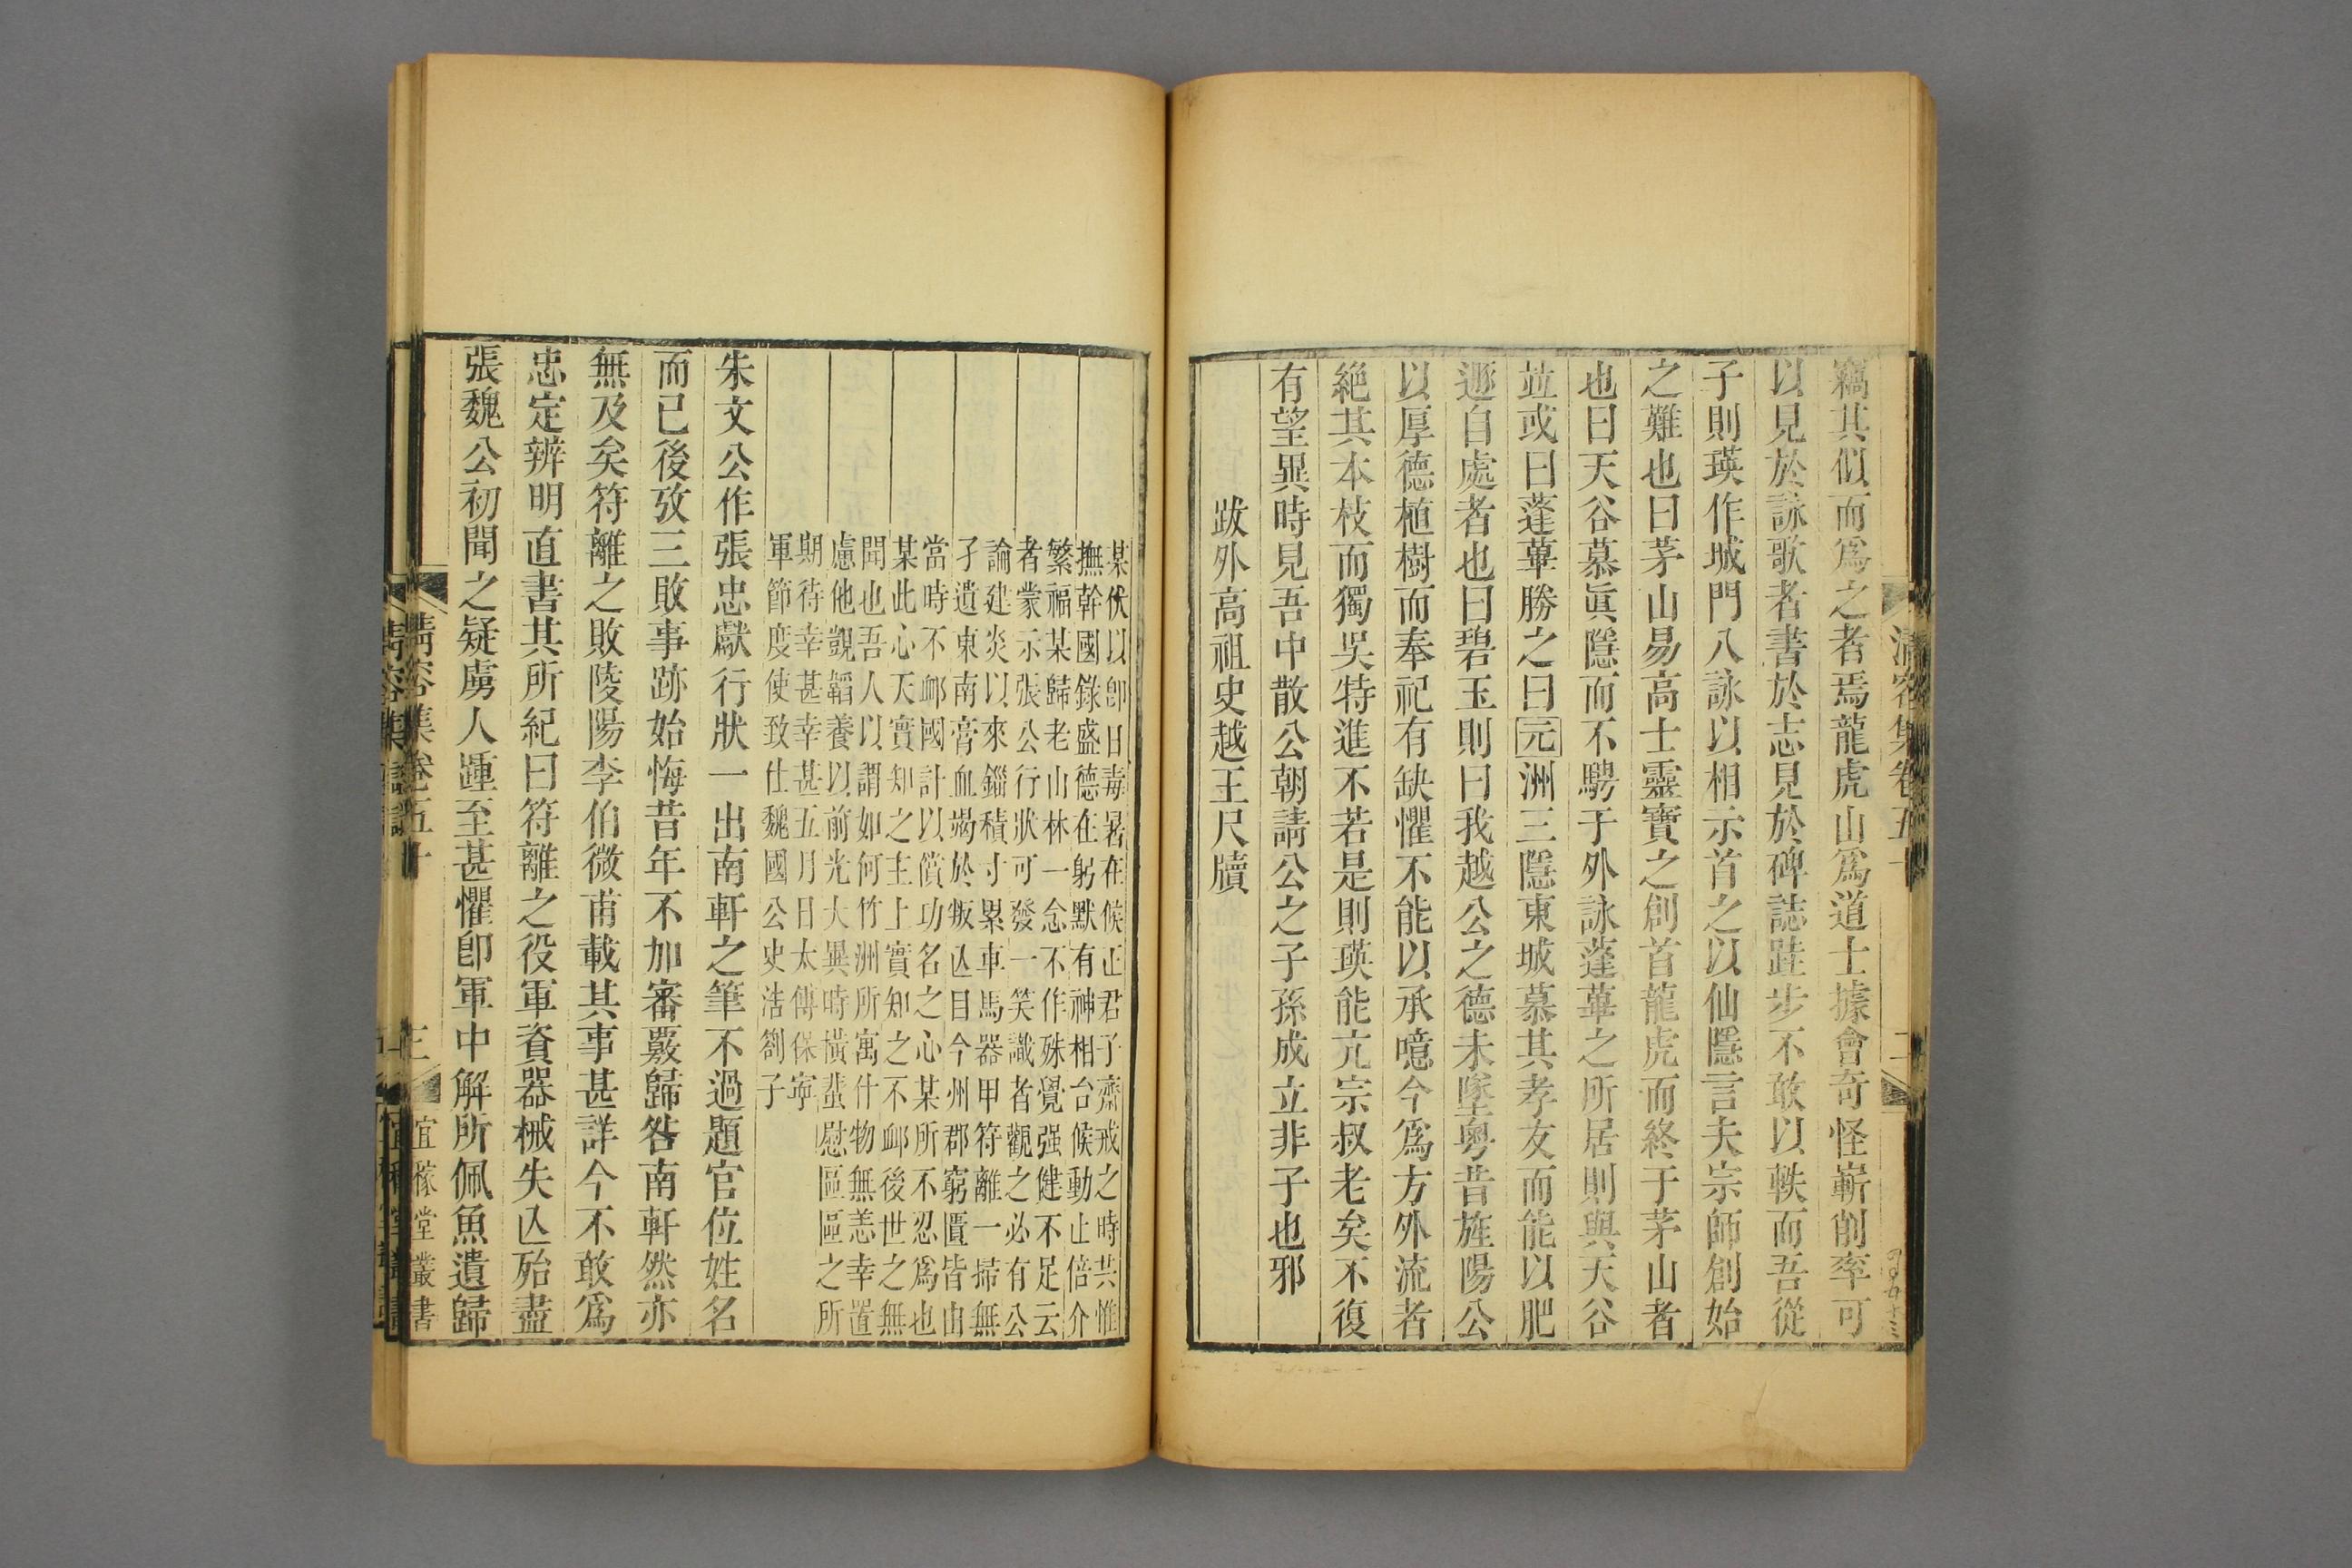 清容集卷五十
二
竊其似而爲之者焉龍虎山爲道士據會奇怪嶄削率可
以見於詠歌者書於志見於碑誌跬步不敢以軼而吾從
子則瑛作城門八詠以相示首之以仙隱言夫宗師創始
之難也曰茅山易高士靈寶之創首龍虎而終于茅山者
也曰天谷慕眞隱而不騁于外詠蓬蓽之所居則與天谷
竝或曰蓬蓽勝之曰元洲三隱東城慕其孝友而能以肥
遯自處者也曰碧玉則曰我越公之德未墜粵昔旌陽公
以厚德植樹而奉祀有缺懼不能以承噫今爲方外流者
絕其本枝而獨吳特進不若是則瑛能亢宗叔老矣不復
有望異時見吾中散公朝請公之子孫成立非子也邪
跋外高祖史越王尺牘
某伏以卽日毒暑在候正君子齋戒之時共惟
撫幹國錄盛德在躬默有神相台候動止倍介
繁福某歸老山林一念不作殊覺强健不足云
者蒙示張公行狀可發一笑識者觀之必有公
論建炎以來錙積寸累車馬器甲符離一掃無
孑遺東南膏血竭於叛亾目今州郡窮匱皆由
當時不卹國計以僨功名之心某所不忍爲也
某此心天實知之主上實知之不卹後世之無
聞也吾人以謂如何竹洲所寓什物無恙幸置
慮他覬韜養以前光大異時橫蜚慰區區之所
期待幸甚幸甚五月日太傅保寧
軍節度使致仕魏國公史浩劄子
朱文公作張忠獻行狀一出南軒之筆不過題官位姓名
而已後攷三敗事跡始悔昔年不加審覈歸咎南軒然亦
無及矣符離之敗陵陽李伯微甫載其事甚詳今不敢爲
忠定辨明直書其所紀曰符離之役軍資器械失亾殆盡
張魏公初聞之疑虜人踵至甚懼卽軍中解所佩魚遺歸
清容集卷五十
三
宜稼堂叢書